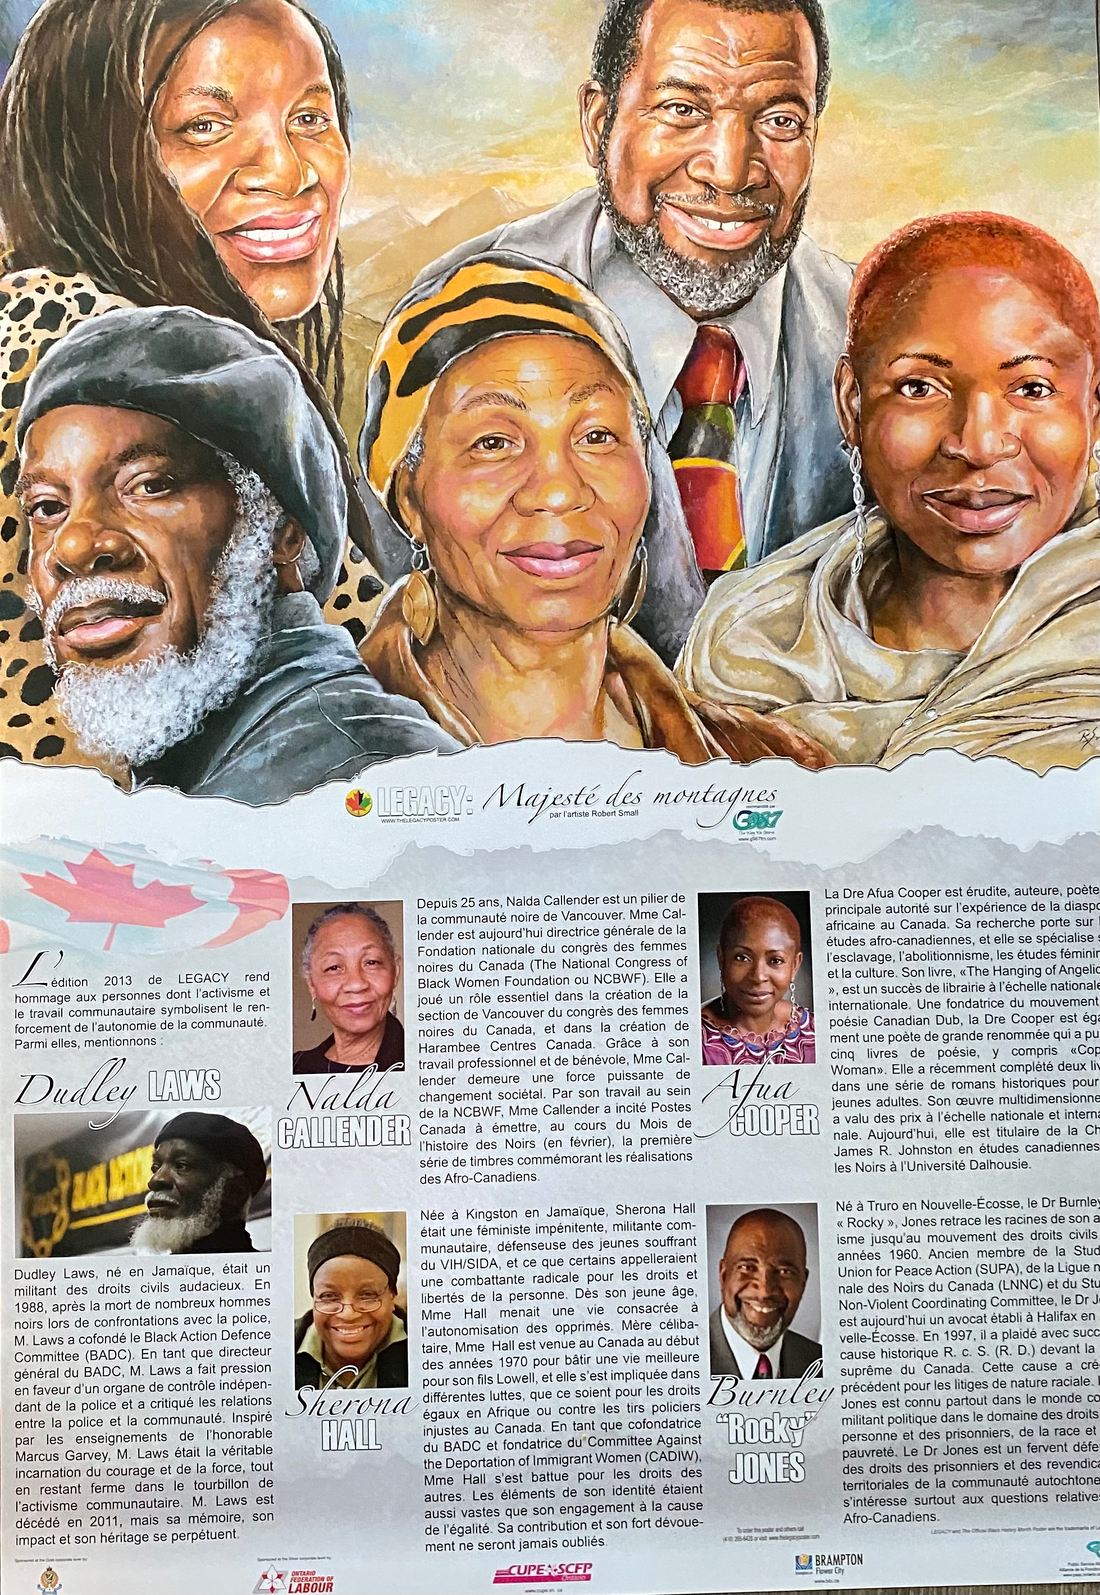 LEGACY: Majesté des montagnes
WWW.THELEGACYPOSTER.COM
par l'artiste Robert Small
G98.7
The Way We Groove
www.g987fm.com
L'édition 2013 de LEGACY rend
hommage aux personnes dont l'activisme et
le travail communautaire symbolisent le ren-
forcement de l'autonomie de la communauté.
Parmi elles, mentionnons :
Dudley LAWS
Dudley Laws, né en Jamaïque, était un
militant des droits civils audacieux. En
1988, après la mort de nombreux hommes
noirs lors de confrontations avec la police,
M. Laws a cofondé le Black Action Defence
Committee (BADC). En tant que directeur
général du BADC, M. Laws a fait pression
en faveur d'un organe de contrôle indépen-
dant de la police et a critiqué les relations
entre la police et la communauté. Inspiré
par les enseignements de l'honorable
Marcus Garvey, M. Laws était la véritable
incarnation du courage et de la force, tout
en restant ferme dans le tourbillon de
l'activisme communautaire. M. Laws est
décédé en 2011, mais sa mémoire, son
impact et son héritage se perpétuent.
Nalda
CALLENDER
Depuis 25 ans, Nalda Callender est un pilier de
la communauté noire de Vancouver. Mme Cal-
lender est aujourd'hui directrice générale de la
Fondation nationale du congrès des femmes
noires du Canada (The National Congress of
Black Women Foundation ou NCBWF). Elle a
joué un rôle essentiel dans la création de la
section de Vancouver du congrès des femmes
noires du Canada, et dans la création de
Harambee Centres Canada. Grâce à son
travail professionnel et de bénévole, Mme Cal-
lender demeure une force puissante de
changement sociétal. Par son travail au sein
de la NCBWF, Mme Callender a incité Postes
Canada à émettre, au cours du Mois de
l'histoire des Noirs (en février), la première
série de timbres commémorant les réalisations
des Afro-Canadiens.
Sherona
HALL
Née à Kingston en Jamaïque, Sherona Hall
était une féministe impénitente, militante com-
munautaire, défenseuse des jeunes souffrant
du VIH/SIDA, et ce que certains appelleraient
une combattante radicale pour les droits et
libertés de la personne. Dès son jeune âge,
Mme Hall menait une vie consacrée à
l'autonomisation des opprimés. Mère céliba-
taire, Mme Hall est venue au Canada au début
des années 1970 pour bâtir une vie meilleure
pour son fils Lowell, et elle s'est impliquée dans
différentes luttes, que ce soient pour les droits
égaux en Afrique ou contre les tirs policiers
injustes au Canada. En tant que cofondatrice
du BADC et fondatrice du Committee Against
the Deportation of Immigrant Women (CADIW),
Mme Hall s'est battue pour les droits des
autres. Les éléments de son identité étaient
aussi vastes que son engagement à la cause
de l'égalité. Sa contribution et son fort dévoue-
ment ne seront jamais oubliés.
Afua
COOPER
La Dre Afua Cooper est érudite, auteure, poète
principale autorité sur l'expérience de la diaspo
africaine au Canada. Sa recherche porte sur
études afro-canadiennes, et elle se spécialise
l'esclavage, l'abolitionnisme, les études féminin
et la culture. Son livre, «The Hanging of Angelic
», est un succès de librairie à l'échelle nationale
internationale. Une fondatrice du mouvement
poésie Canadian Dub, la Dre Cooper est éga
ment une poète de grande renommée qui a pu
cinq livres de poésie, y compris «Cop
Woman». Elle a récemment complété deux liv
dans une série de romans historiques pour
jeunes adultes. Son œuvre multidimensionne
a valu des prix à l'échelle nationale et interna
nale. Aujourd'hui, elle est titulaire de la Ch
James R. Johnston en études canadiennes
les Noirs à l'Université Dalhousie.
Burnley
"Rocky"
JONES
Né à Truro en Nouvelle-Écosse, le Dr Burnley
« Rocky », Jones retrace les racines de son a
isme jusqu'au mouvement des droits civils
années 1960. Ancien membre de la Stud
Union for Peace Action (SUPA), de la Ligue n
nale des Noirs du Canada (LNNC) et du Stu
Non-Violent Coordinating Committee, le Dr J
est aujourd'hui un avocat établi à Halifax en
velle-Écosse. En 1997, il a plaidé avec succ
cause historique R. c. S. (R. D.) devant la
suprême du Canada. Cette cause a cré
précédent pour les litiges de nature raciale.
Jones est connu partout dans le monde co
militant politique dans le domaine des droits
personne et des prisonniers, de la race et
pauvreté. Le Dr Jones est un fervent défe
des droits des prisonniers et des revendica
territoriales de la communauté autochtone
s'intéresse surtout aux questions relatives
Afro-Canadiens.
ONTARIO
FEDERATION OF
LABOUR
CUPE SCFP
Ontario
www.cupe.on.ca
BRAMPTON
Flower City